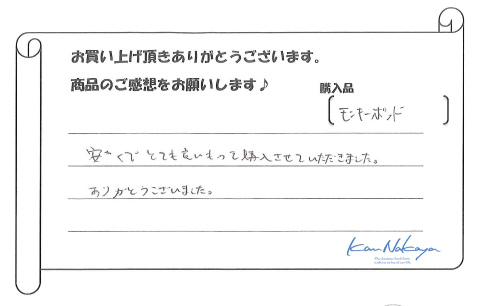 お買い上げ頂きありがとうございます。
商品のご感想をお願いします♪
購入品
モンキーボンド
安くてとても良いもって購入させていただきました。
ありがとうございました。
Kan Nakaya